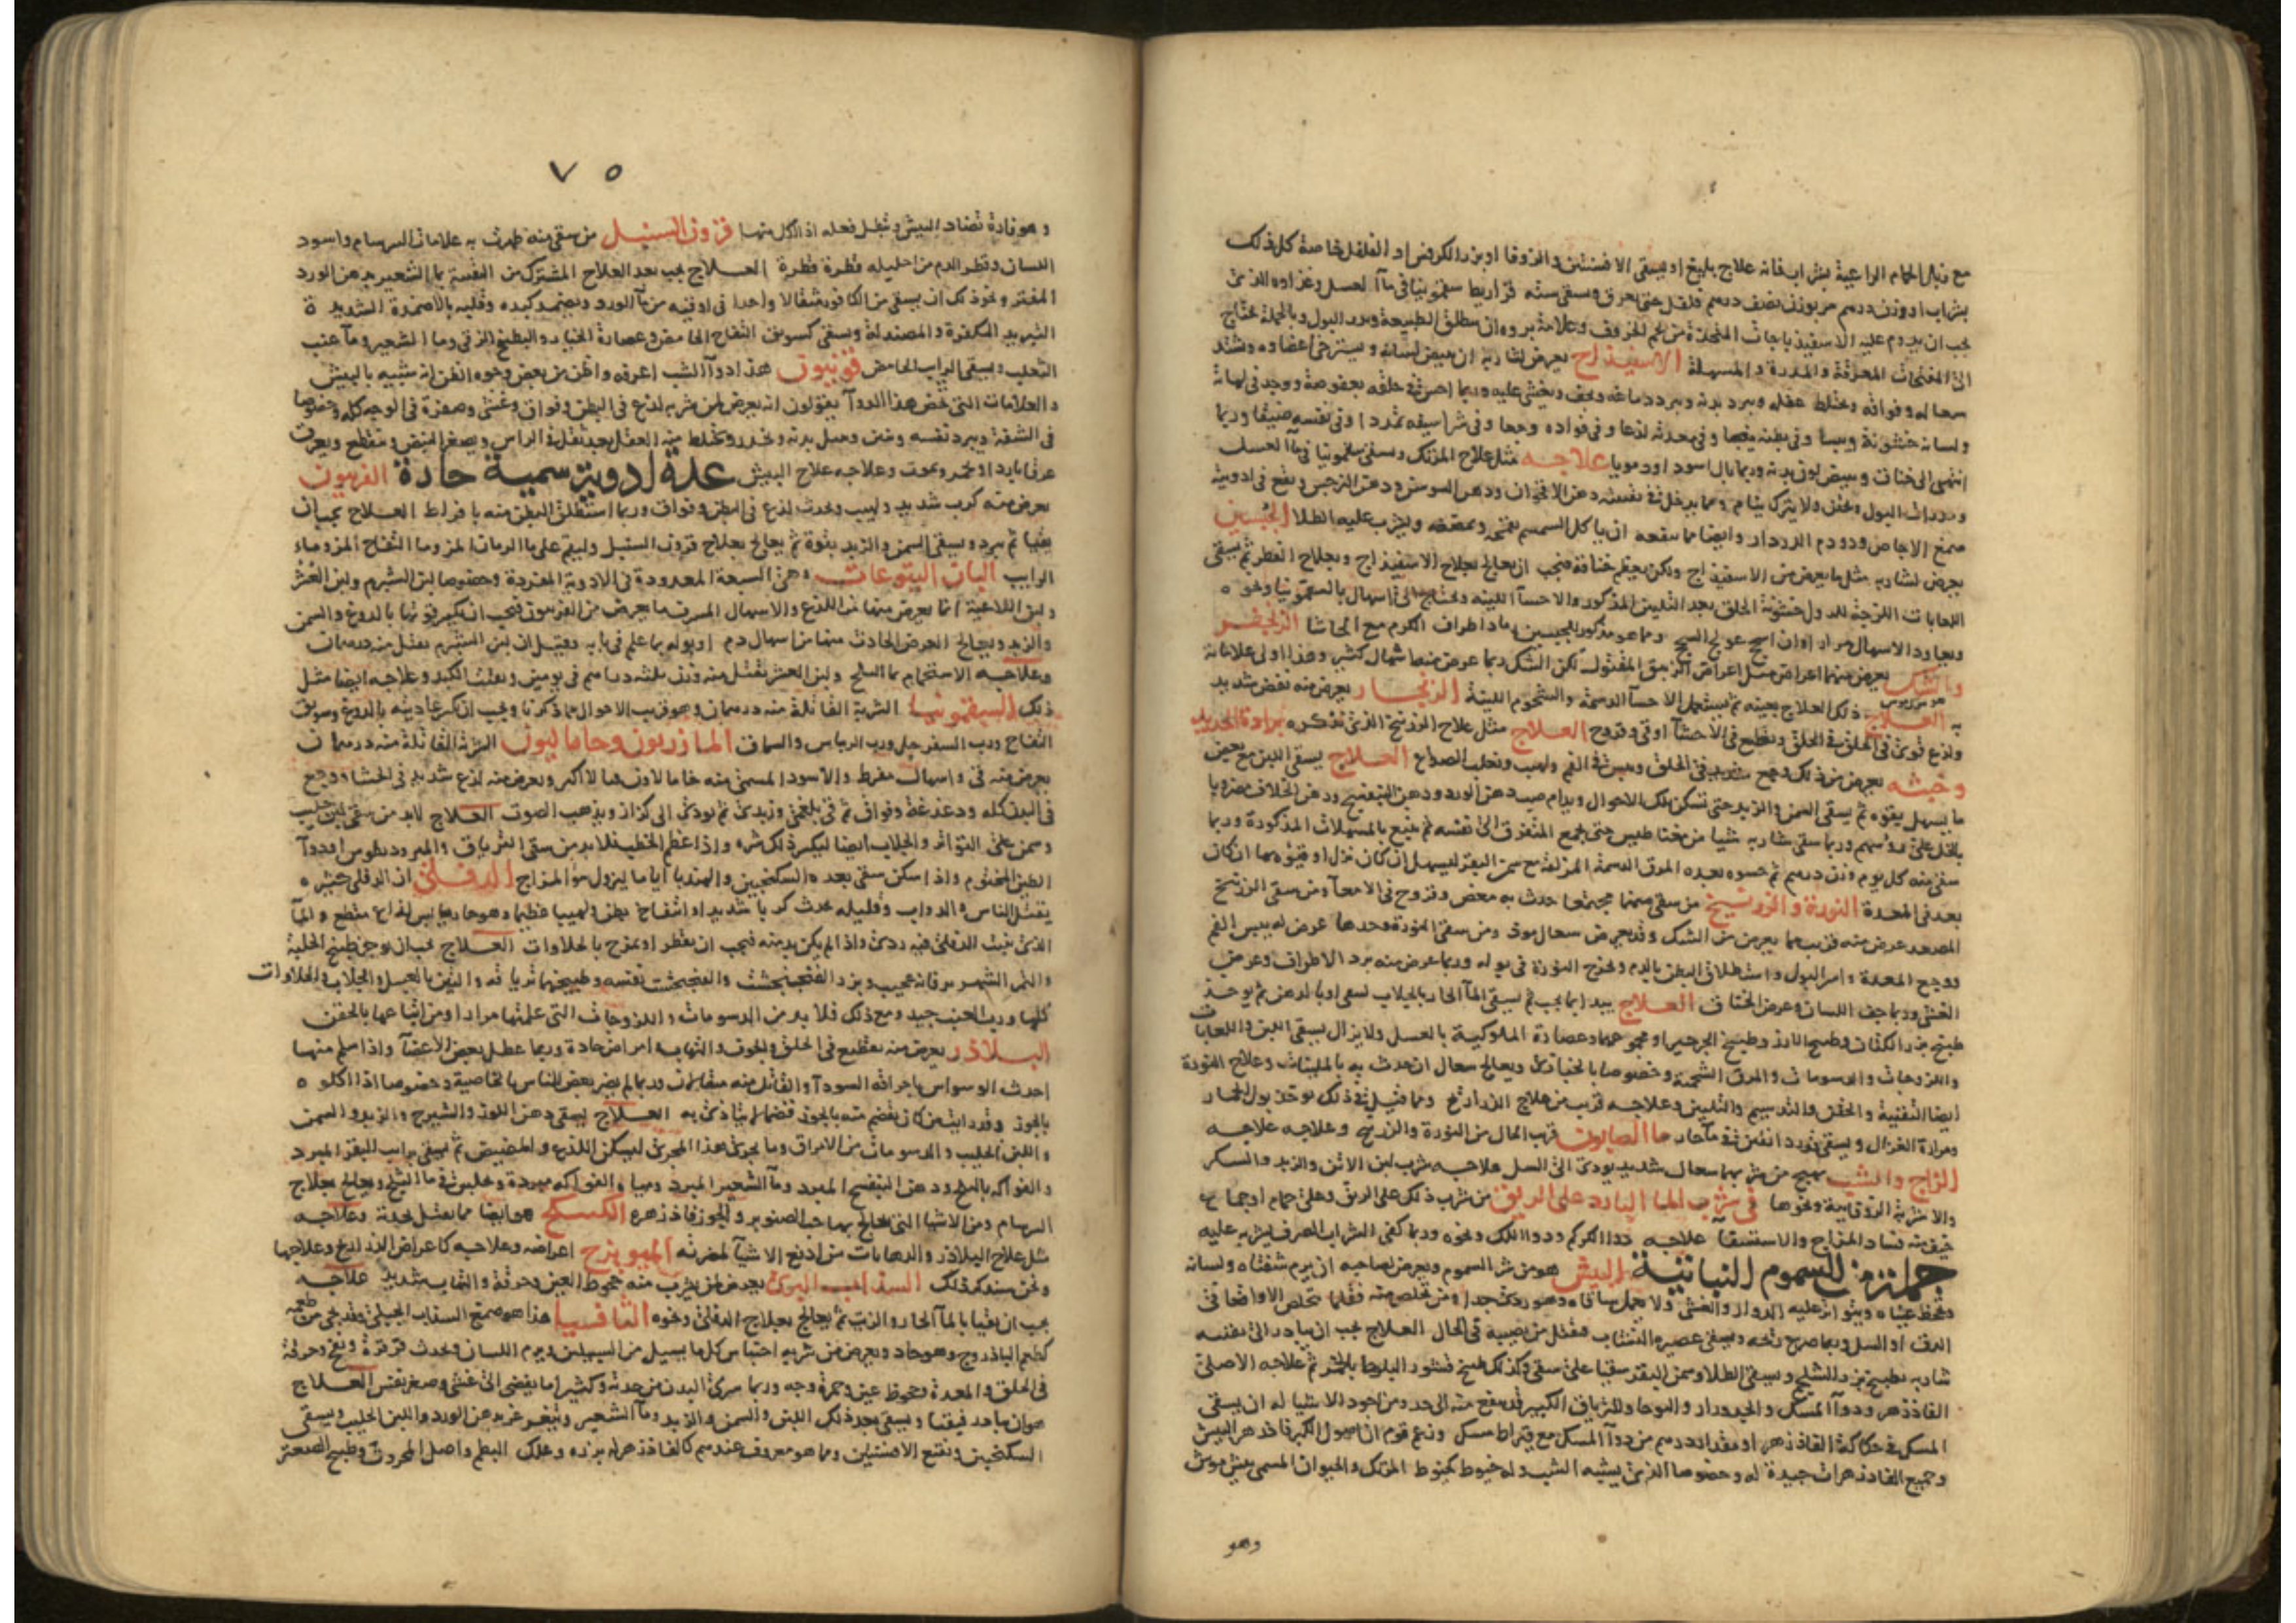 مع زبل الحمام الراعية بشراب فانه علاج بليغ او يسقى الافسنتين والزوفا او بزر الكرفس او الفلفل خاصة كل ذلك
بشراب او وزن درهم مر بوزن نصف درهم فلفل حتى يعرق ويسقى منه
يجب ان يدوم عليه الاسفيذباجات المتخذة من لحم الخروف وعلامة بروه ان ينطلق الطبيعة ويدر البول وبالجملة يحتاج
الى المفتحات المعرقة والمدرة والمسهلة الاسفيذاج يعرض لشاربه ان يبيض لسانه ويسترخى اعضاوه ويشتد
سعاله وفواقه ويختلط عقله ويبرد بدنه ويبرد دماغه ويجف ويغشى عليه وربما احس فى حلقه بعفوصة ووجد فى لهاته
ولسانه خشونة ويبسا وفى بطنه مغصا وفى معدته لذعا وفى فواده وجعا وفى شراسيفه تمددا وفى نفسه ضيقا وربما
انتهى الى خناق ويبيض لون بدنه وربما بال اسود او دمويا علاجه مثل علاج المرتك ويسقى سقمونيا فى ماآ العسل
ومدرات البول ويحقن ولا يترك ينام
صمغ الاجاص ودودم الدردار وايضا مما ينفعه ان ياكل السمسم يقمحه ويمضغه ويشرب عليه الطلا الجبسين
يعرض لشاربه مثل ما يعرض من الاسفيذاج ولكن يعظم خناقه فيجب ان يعالج بعلاج الاسفيذاج وبعلاج الفطر ثم يسقى
اللعابات اللزجة لتدول خشونة الحلق بعد التليين المذكور والاحسآ اللينه ويحتاج الى اسهال بالسقمونيا ونحوه
ويعاود الاسهال مرارا وان اسحج عولج السحج ومما هو مذكور للجبسين رماد اطراف الكرم مع الحاشا الزنجفر
والشك يعرض منهما اعراض مثل اعراض الزيبق المقتول لكن الشك ربما عرض منه اسهال كثير وهذا اولى علاماته
به العلاج ذلك العلاج بعينه ثم يستعمل الاحسآ الدسمة والشحوم اللينة الزنجار يعرض منه مغص شديد
ولذع قوى فى الحلق وتقطيع فى الاحشآ وقى وقروح العلاج مثل علاج الزرنيخ الذى نذكره برادة الحديد
وخبثه يعرض من ذلك وجع شديد فى البطن ويبس فى الفم ولهيب ويغلب الصداع العلاج يسقى اللبن مع بعض
ما يسهل بقوه ثم يسقى السمن والزبد حتى تسكن تلك الاحوال ويدام صب دهن الورد ودهن البنفسج ودهن الخلاف مضروبا
بالخل على روسهم وربما سقى شاربه شيا من مغناطيس حتى يجمع المتفرق الى نفسه ثم يتبع بالمسهلات المذكورة وربما
سقى منه كل يوم وزن درهم ثم حسوه بعده المرق الدسمة المزلقة مع سمن البقر ليسهل ان كان نزل او قيوه بها ان كان
بعد فى المعدة النورة والزرنيخ من سقى منهما مجتمعا حدث به مغص وقروح فى الامعآ ومن سقى الزرنيخ
المصعد عرض منه قريب مما يعرض من الشك وقد يعرض سعال موذ ومن سقى النورة وحدها عرض له يبس الفم
ووجع المعدة وامر البول واستطلاق البطن بالدم ويخرج النورة فى بوله وربما عرض منه برد الاطراف وعرض
الغشى وربما جف اللسان وعرض الخناق العلاج يبدا بما يجب ثم يسقى المآ الحار بالجلاب
طبيخ بزر الكتان وطبيخ الارز وطبيخ الجرجير او مجموعهما وعصارة الملوكية بالعسل ولا يزال يسقى اللبن واللعابات
واللزوجات والدسومات والمرق الشحمة وخصوصا بالخبازى ويعالج سعال ان حدث به بالملينات وعلاج النورة
ايضا التقية والحقن والتدسيم والتليين وعلاجه قريب من علاج الزراريح ومما قيل فى ذلك يوخذ بول الحمار
ومرارة الغزال ويسقى ماآ الصابون قريب الحال من النورة والزرنيخ وعلاجه علاجه
الزاج والشب يهيج من شربهما سعال شديد يودى الى السل علاجه شرب لبن الاتن والزبد والسكر
والاشربة الزوفايية ونحوها فى شرب المآ البارد على الريق من شرب ذلك على الريق وعلى حمام او جماع
خيف منه فساد المزاج والاستسقآ علاجه دوا الكركم ودوا اللك ونحوه وربما كفى الشراب الصرف يشربه عليه
جملة من السموم النباتية البيش هو من شر السموم ويعرض لصاحبه ان يرم شفتاه ولسانه
وتجحظ عيناه ويتواتر عليه الدوار والغشى ولا يحمل ساقاه وهو ردى جدا ومن تخلص منه فقلما تخلص الا واقعا فى
الدق او السل وربما صرع ريحه ويسقى عصيره النشاب فيقتل من يصيبه فى الحال العلاج يجب ان يبادر الى تقيه
شاربه بطبيخ بزر الشلجم ويسقى الطلا وسمن البقر سقيا على سقى وكذلك طبيخ قشور البلوط بالخمر ثم علاجه الاصلى
الفاذزهر ودوآ المسك والجدوار والبوحا والترياق الكبير قد ينفع منه الى حد ومن اجود الاشيا له ان يسقى
المسك فى حكاكة الفاذزهر او مقدار درهم من دوآ المسك مع قيراط مسك وزعم قوم ان اصول الكبر فاذزهر البيش
وجميع الفاذزهرات جيدة له وخصوصا الذى يشبه الشب وله خيوط كخيوط المرتك والحيوان المسمى بيش موش
وهو
٧٥
وهو فارة تضاد البيش وتبطل فعله اذا اكل منها قرون السنبل من سقى منه ظهرت به علامات السرسام واسود
اللسان وقطر الدم من احليله قطرة قطرة العلاج يجب بعد العلاج المشترك من التقية بمآ الشعير بدهن الورد
المفتر ونحو ذلك ان يسقى من الكافور مثقالا واحدا فى اوقيه من مآ الورد ويضمد كبده وقلبه بالاضمدة الشديدة
التبريد المكفرة والمصندلة ويسقى كسويق التفاح الحامض وعصارة الخيار والبطيخ الزقى ومآ الشعير ومآ عنب
الثعلب ويسقى الرايب الحامض قونيون هذا دوآ الشب اعرفه واظن من بعض وجوه الظن انه شبيه بالبيش
والعلامات التى تخص هذا الدوآ يقولون انه يعرض لمن شربه لذع فى البطن وفواق وغشى وصفرة فى الوجه كله وخصوصا
فى الشفة ويبرد نفسه ويختلط منه العقل بعد ثقل فى الراس ويصغر النبض ويتقطع ويعرق
عرقا باردا ويخدر ويموت وعلاجه علاج البيش عدة ادوية سمية حادة الفربيون
يعرض منه كرب شديد ولهيب ويحدث لذع فى البطن وفواق وربما استطلق البطن منه بافراط العلاج يجب ان
يقيا ثم يبرد ويسقى السمن والزبد بقوة ثم يعالج بعلاج قرون السنبل وليقم على مآ الرمان المز ومآ التفاح المز وماء
الرايب البان اليتوعات وهى السبعة المعدودة فى الادوية المفردة وخصوصا لبن الشبرم ولبن العشر
ولبن اللاعية انما يعرض منها من اللذع والاسهال المسرف ما يعرض من الفربيون فيجب ان يكسر قوتها بالدوغ والسمن
والزبد ويعالج العرض الحادث منها من اسهال دم او بوله بما علم فى بابه وقيل ان لبن الشبرم يقتل منه درهمان
وعلاجه الاستحمام بمآ الثلج ولبن العشر يقتل منه وزن ثلثه دراهم فى يومين ويفتت الكبد وعلاجه ايضا مثل
ذلك السقمونيا الشربة القاتلة منه درهمان وهو قريب الاحوال مما ذكرنا ويجب ان يكسر عاديته بالدوغ وسويق
التفاح ورب السفرجل ورب الريباس والسماق المازريون وحاماليون الشربة القاتلة منه درهمان
يعرض منه قى واسهال مفرط والاسود المسمى منه خامالاون هالاا اكبر ويعرض منه لذع شديد فى الحشا ووجع
فى البدن كله ودغدغة وفواق ثم قى بلغمى وزبدى ثم يودى الى كزاز ويذهب الصوت العلاج لابد من سقى لبن حليب
وسمن على التواتر والجلاب ايضا ليكسر ذلك شره واذا عظم الخطب فلابد من سقى الترياق والمبرود
الطين المختوم واذا سكن سقى بعده السكنجبين والهندبا اياما ليزول سو المزاج الدفلى ان الدفلى كثيره
يقتل الناس والدواب وقليله يحدث كربا شديدا وانتفاخ بطن ولهيبا عظيما وهو حار يابس لذاع مقطع والمآ
الذى ينبت الدفلى فيه ردى واذا لم يكن بد منه فيجب ان يقطر او يمزج بالحلاوات العلاج يجب ان يوجر طبيخ الحلبة
والتمر الشهريز فانه عجيب وبزر الفنجنكشت والفنجنكشت نفسه وطبيخهما ترياقه والتين بالعسل والجلاب والحلاوات
كلها ورب العنب جيد ومع ذلك فلابد من الدسومات واللزوجات التى علمتها مرارا ومن اتباعها بالحقن
البلاذر يعرض منه تقطيع فى الحلق والجوف والتهاب وامراض حادة وربما عطل بعض الاعضآ واذا سلم منها
احدث الوسواس باحراقه السودآ والقاتل منه مثقالان وربما لم يضر بعض الناس بالخاصية وخصوصا اذا اكلوه
بالجوز وقد رايت من كان يقضم منه بالجوز قضما ثم لا يتاذى به العلاج يسقى دهن اللوز والشيرج والزبد والسمن
واللبن الحليب والدسومات من الامراق وما يجرى هذا المجرى ليسكن اللذع والمضيض ثم يسقى رايب البقر المبرد
والفواكه بالثلج ودهن البنفسج المبرد ومآ الشعير المبرد ومياه الفواكه مبردة ويجلس فى مآ الثلج ويعالج بعلاج
السرسام ومن الاشيا التى يعالج بها حب الصنوبر والجوز فاذزهره الكسنج هو ايضا مما يقتل بحدته وعلاجه
مثل علاج البلاذر والدهانات من انفع الاشيآ لمضرته الميويزج اعراضه وعلاجه كاعراض الذراريح وعلاجها
ونحن سنذكر ذلك السذاب البرى يعرض لمن يشرب منه جحوظ العين وحرقة والتهاب شديد علاجه
يجب ان يتقيا بالمآ الحار والزيت ثم يعالج بعلاج الدفلى ونحوه الثافسيا هذا هو صمغ السذاب الجبلى وقد يجى من طعمه
كطعم الباذروج وهو حاد ويعرض من شربه احتباس كل ما يسيل من السبيلين ويرم اللسان ويحدث قرقرة ونفخ وحرقة
فى الحلق والمعدة وجحوظ عين وحمرة وجه وربما سرى البدن من حدته وكثيرا ما يفضى الى غشى وصغر نفس العلاج
هو ان يبادر فيتقيا ويسقى بعد ذلك اللبن والسمن والزبد ومآ الشعير ويتغرغر بدهن الورد واللبن الحليب ويسقى
السكنجبين ونقيع الافسنتين ومما هو معروف عندهم كالفاذزهر له بزره وعلك البطم واصل المحروث وطبيخ الصعتر